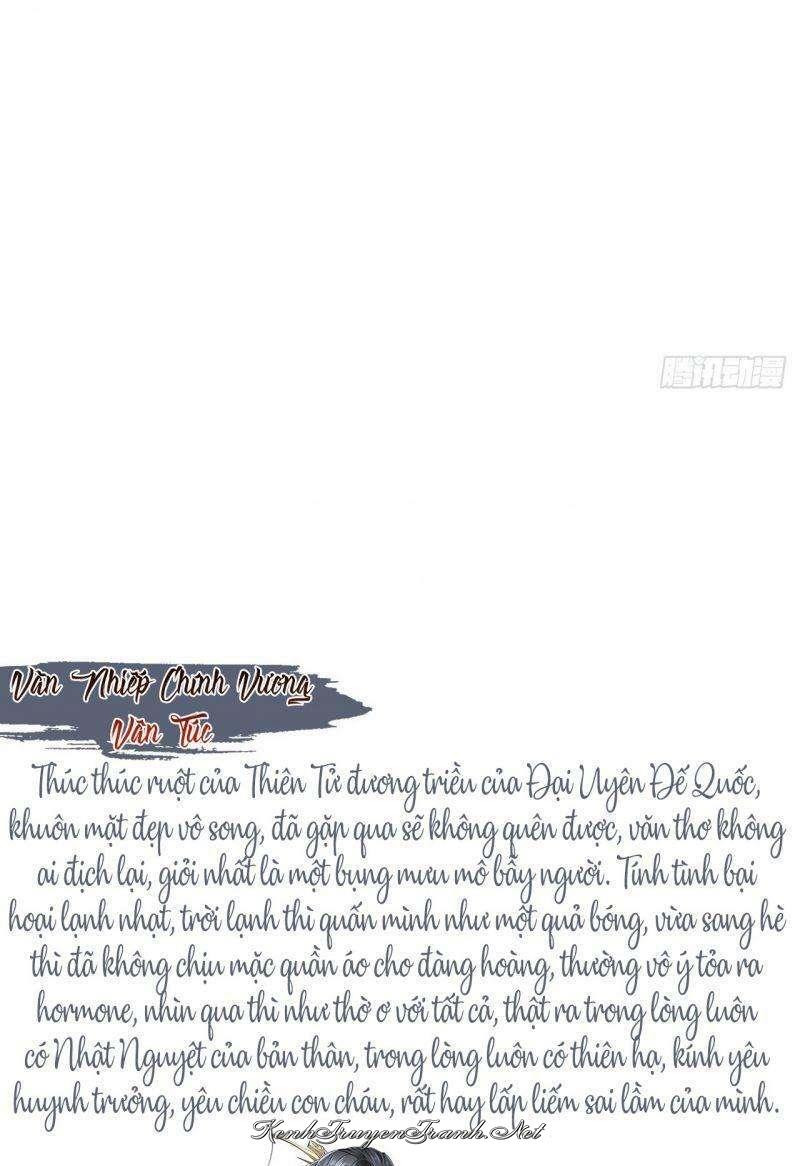 腾讯动漫
Văn Nhiếp Chính Vương
Văn Túc
Thúc thúc ruột của Thiên Tử đương triều của Đại Uyên Đế Quốc,
khuôn mặt đẹp vô song, đã gặp qua sẽ không quên được, văn thơ không
ai địch lại, giỏi nhất là một bụng mưu mô bẫy người. Tính tình bại
hoại lạnh nhạt, trời lạnh thì quấn mình như một quả bóng, vừa sang hè
thì đã không chịu mặc quần áo cho đàng hoàng, thường vô ý tỏa ra
hormone, nhìn qua thì như thờ ơ với tất cả, thật ra trong lòng luôn
có Nhật Nguyệt của bản thân, trong lòng luôn có thiên hạ, kính yêu
huynh trưởng, yêu chiều con cháu, rất hay lấp liếm sai lầm của mình.
KenhTruyenTranh.Net